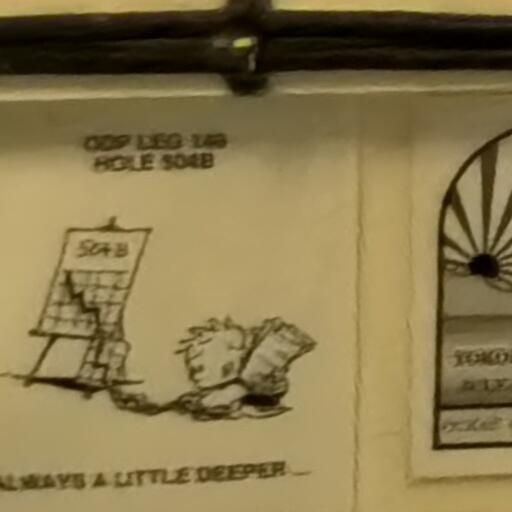 ODP LEG 148
HOLE 504B
504B
ALWAYS A LITTLE DEEPER...